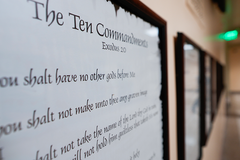 The Ten Commandments
Exodus 20
you shalt have no other gods before me
ou shalt not make unto thee any graven image
shalt not take the name of the Lord
will not hold him guiltless that